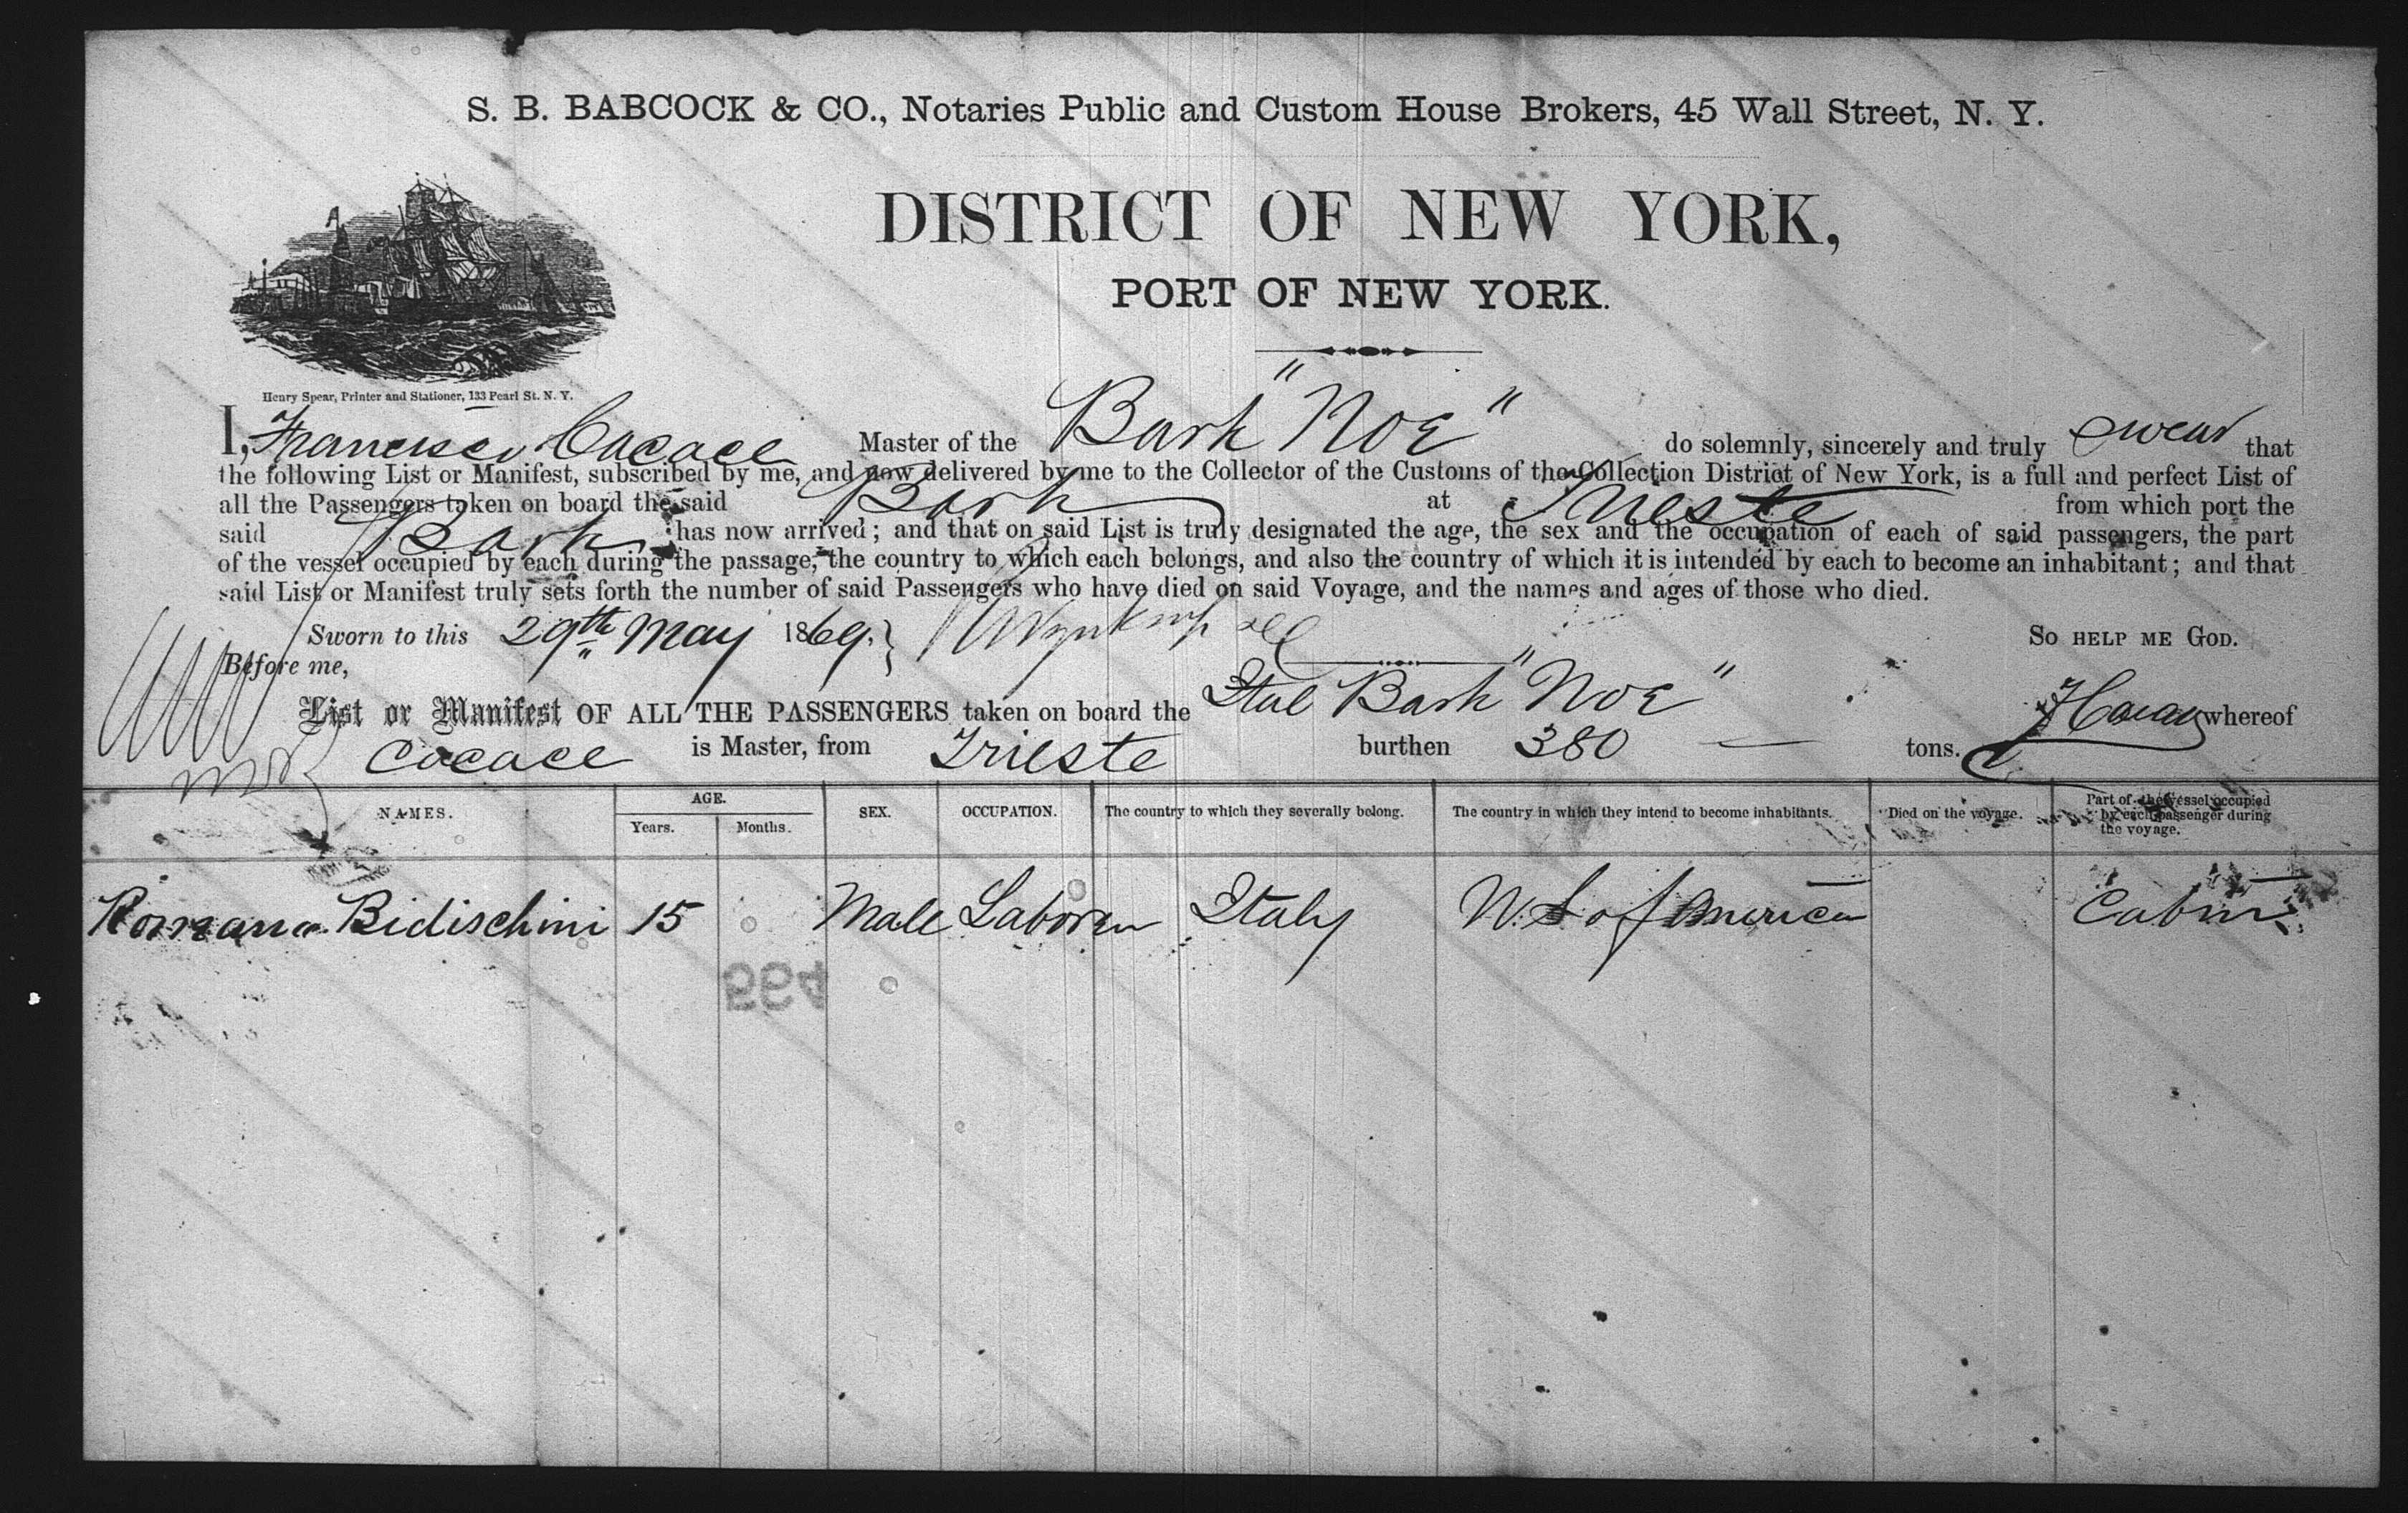 S. B. BABCOCK & CO., Notaries Public and Custom House Brokers, 45 Wall Street, N. Y.
DISTRICT OF NEW YORK,
PORT OF NEW YORK.
Henry Spear, Printer and Stationer, 133 Pearl St. N. Y.
I, Francisco Cacace Master of the Bark "Noe" do solemnly, sincerely and truly swear that
the following List or Manifest, subscribed by me, and now delivered by me to the Collector of the Customs of the Collection District of New York, is a full and perfect List of
all the Passengers taken on board the said Bark at Trieste from which port the
said Bark has now arrived; and that on said List is truly designated the age, the sex and the occupation of each of said passengers, the part
of the vessel occupied by each during the passage, the country to which each belongs, and also the country of which it is intended by each to become an inhabitant; and that
said List or Manifest truly sets forth the number of said Passengers who have died on said Voyage, and the names and ages of those who died.
Sworn to this 29th May 1869. } SO HELP ME GOD.
Before me,
List or Manifest OF ALL THE PASSENGERS taken on board the Ital Bark "Noe" whereof
Cacace is Master, from Trieste burthen 380 tons.
NAMES. AGE. Years. Months. SEX. OCCUPATION. The country to which they severally belong. The country in which they intend to become inhabitants. Died on the voyage. Part of the vessel occupied by each passenger during the voyage.
Romano Bidischini 15 Male Laborer Italy U. S of America Cabin
564